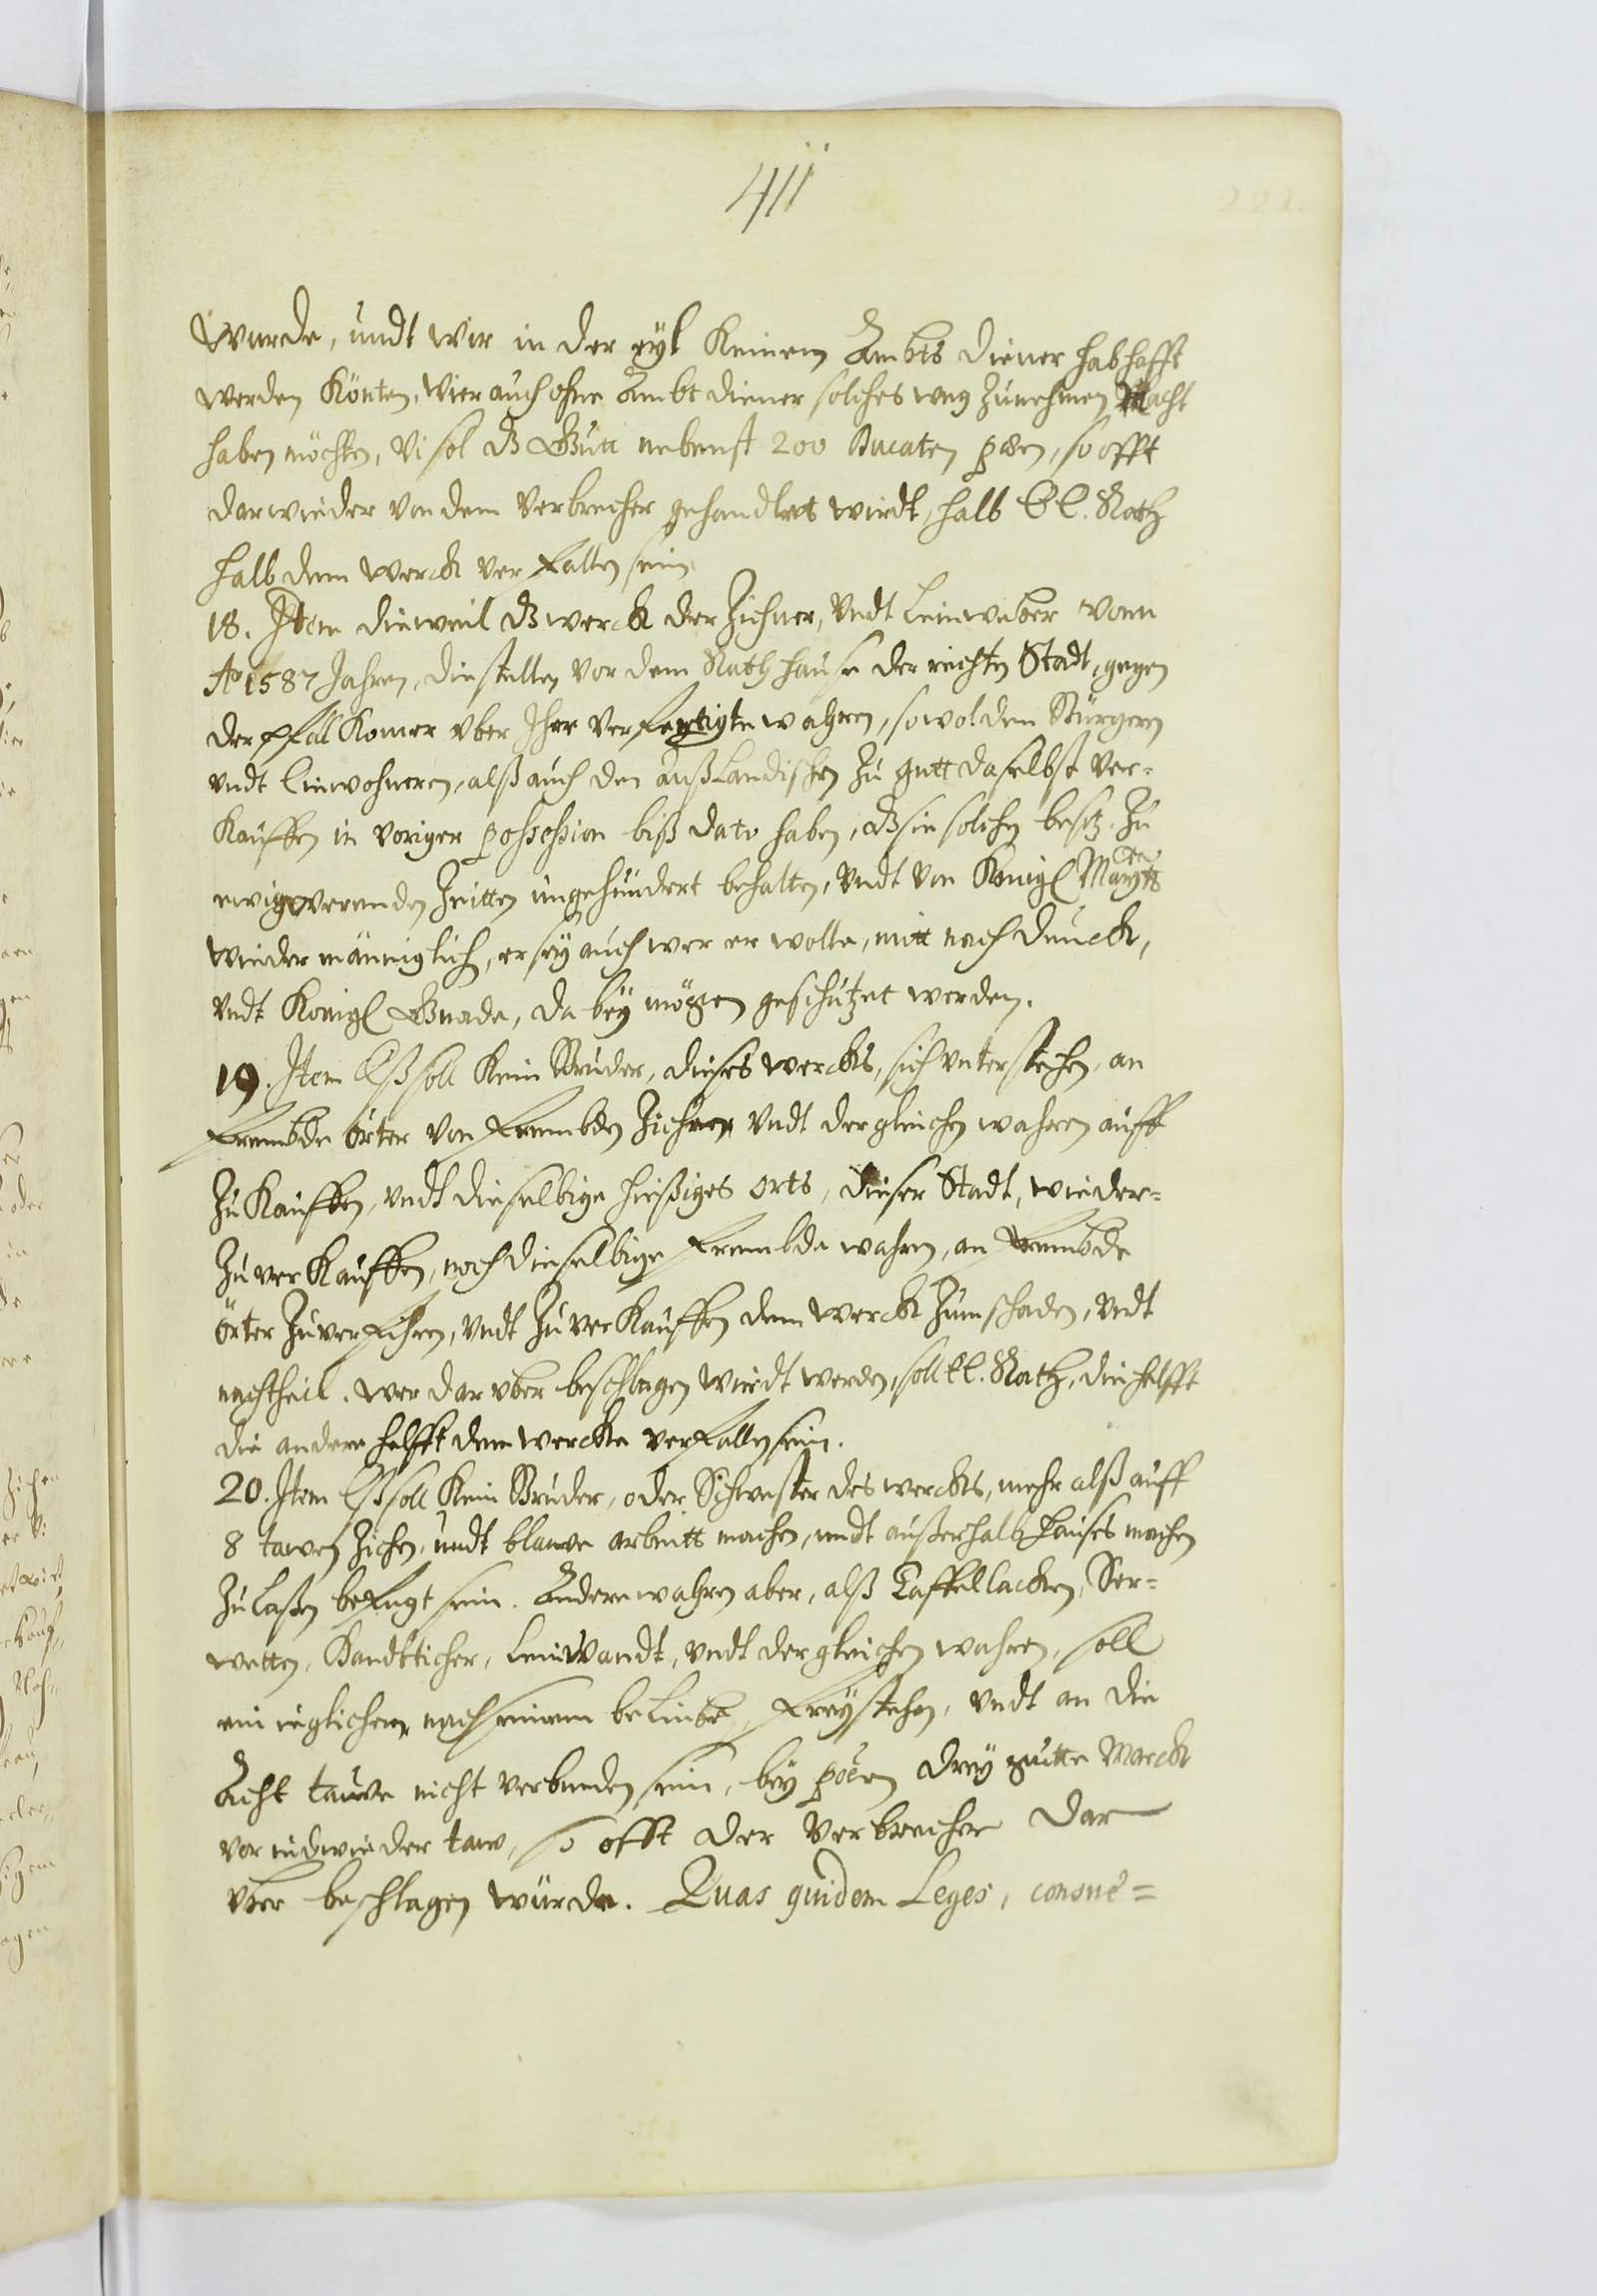 411
Wurde, undt wir in der eyl Keinem Ambts diener habhafft
werden Könten, Wier auch ohne Ambt diener solches weg Zunehmen Macht
haben möchten, sol dz Gutt nebenst 200 Ducaten pœn, so offt
darwieder von dem Verbrecher gehandlet wirdt, halb E. E. Rath
halb dem werck ver fallen sein
18. Item dieweil dz werck der Zichner, Vndt Leinweber vonn
Ao 1587 Jahren, die stellen vor dem Rathhause der rechten Stadt, gegen
der pfall Komer vber Ihre verfertigte wahren, so wol den Bürgeren
vndt Einwohneren, alß auch den außlandischen Zu gutt daselbst ver-
Kauffen in voriger possession biß dato haben, dz sie solchen besitz Zu
ewigwerenden Zeitten ungehindert behalten, Vndt von Königl Maytts
wieder männiglich, er sey auch wer er wolle, mitt nach druck,
vndt Königl Gnade, da bey mögen geschützet werden.
19. Item Eß soll Kein Bruder, dieses wercks, sich vnterstehen, an
frembde örter von frembden Zichner Vndt dergleichen wahren auff
Zu Kauffen, vndt dieselbige hießiges orts, dieser Stadt, wieder-
Zu ver Kauffen, noch dieselbige frembde wahren, an frembde
örter Zuverfihren, Vndt Zu ver Kauffen dem werck Zum schaden, vndt
nachtheil. wer dar vber beschlagen wirdt werden, soll E E. Rath, die helfft
die andere helfft dem wercke verfallen sein.
20. Item Eß soll Kein Bruder, oder Schwester des wercks, mehr alß auff
8 tawen Zichen, undt blawe arbeitt machen, undt außerhalb Hauses machen
Zu laßen befugt sein. Andere wahren aber, alß Taffellacken, Ser-
wetten, Handticher, Leinwandt, vndt dergleichen wahren, soll
ein ieglichen nach seinem belieben, freystehen, vndt an die
Acht tawe nicht verbunden sein, bey pöen drey gutte Marck
vor iedwieder taw, so offt der Verbrecher dar
vber beschlagen würde. Quas quidem Leges, consue=